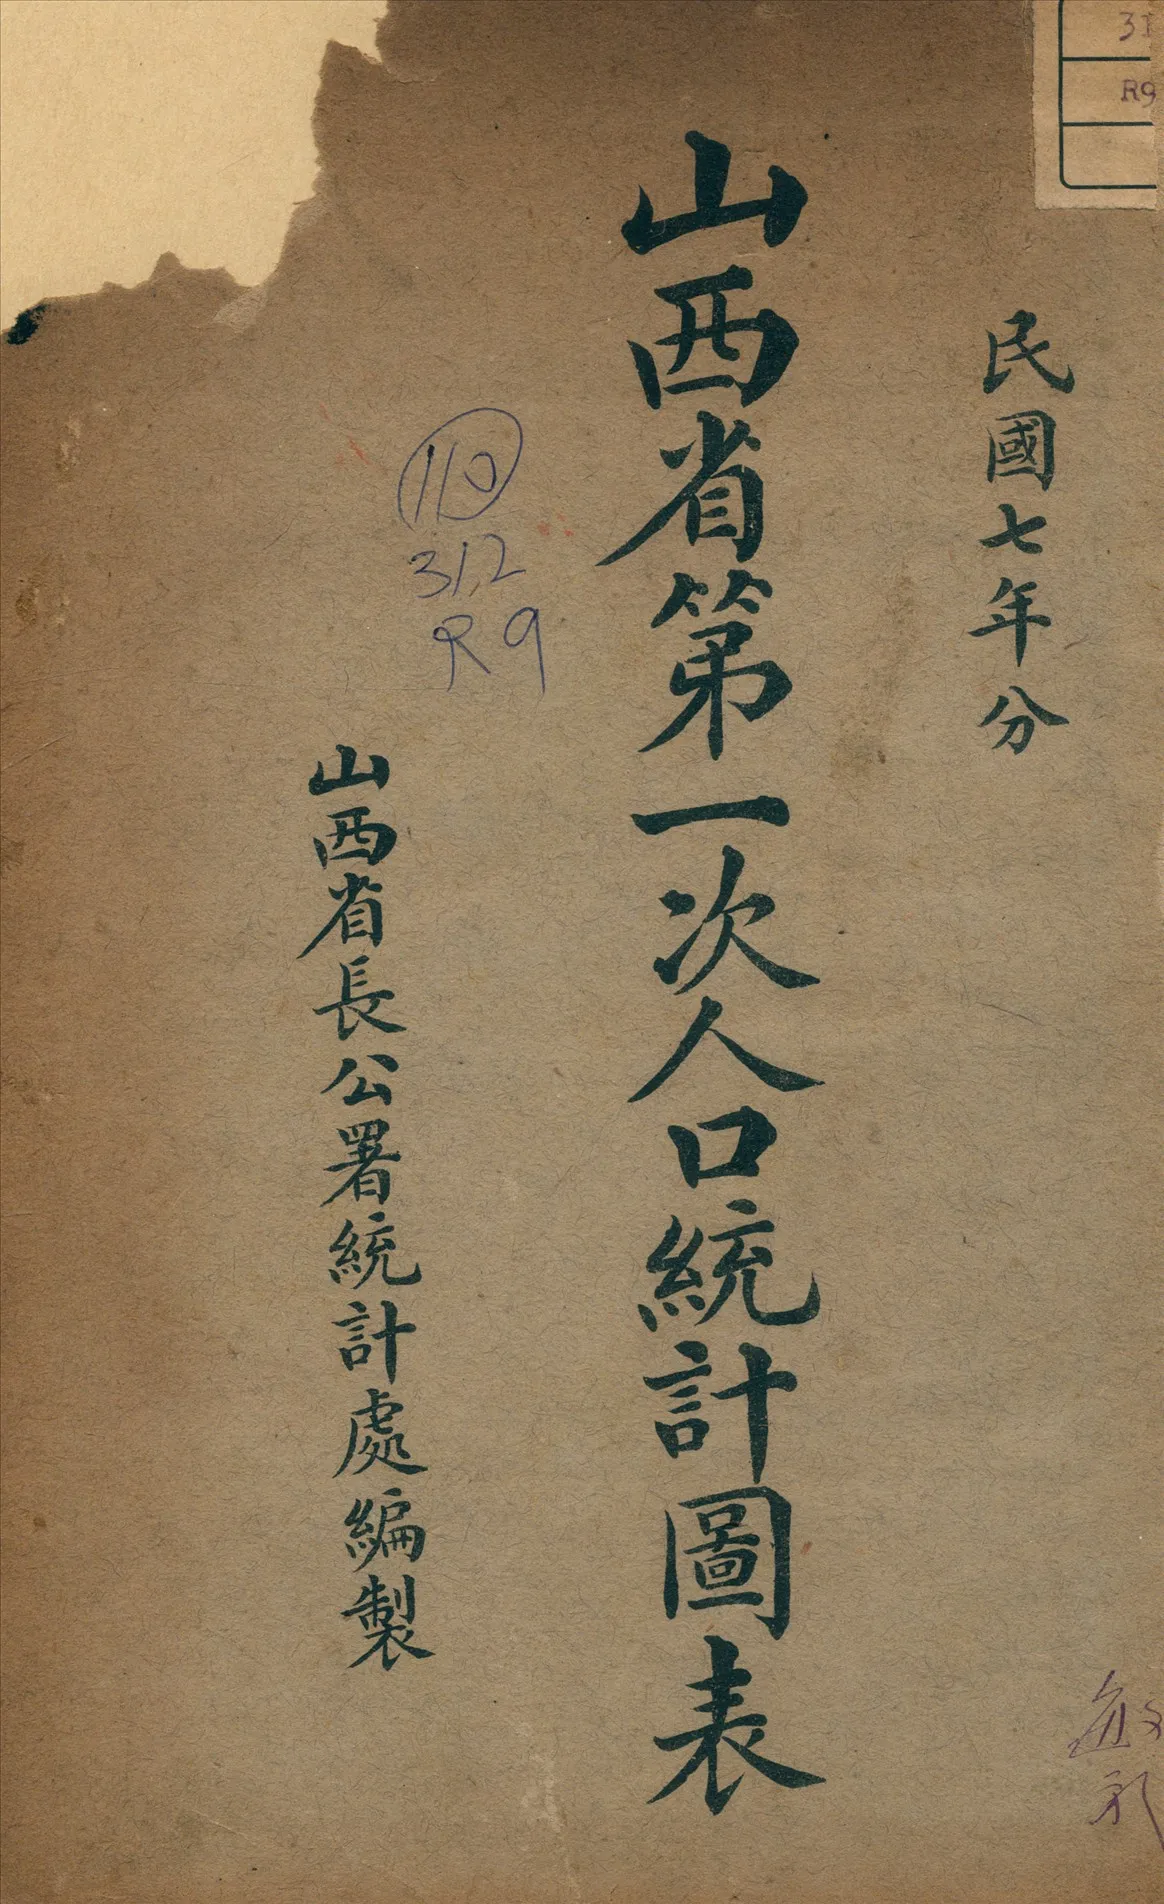 民國七年分
山西省第一次人口統計圖表
山西省長公署統計處編製
110
312
R9
31
R9